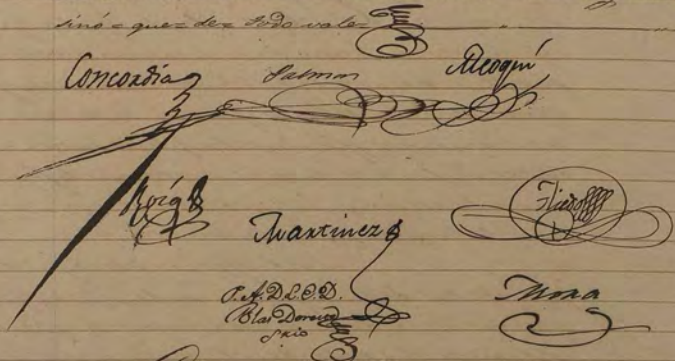 sinó = que = de = todo vale =
Concordia Salmon Alcoquí
Roig Martinez
P. A. D. L. E. D.
Blas Dorour Mora
Srio